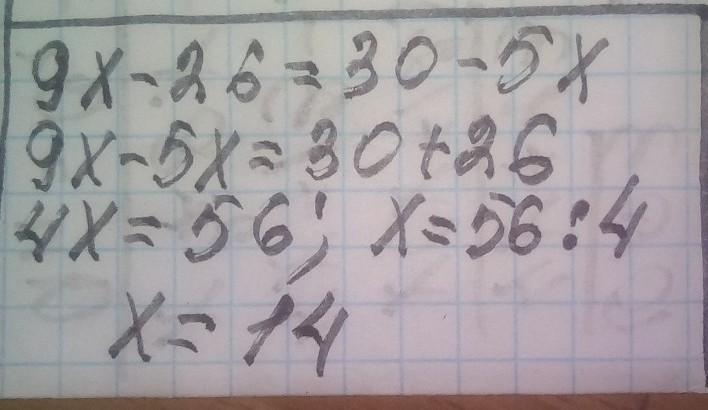 9x-26=30-5x
9x-5x=30+26
4x=56; x=56:4
x=14